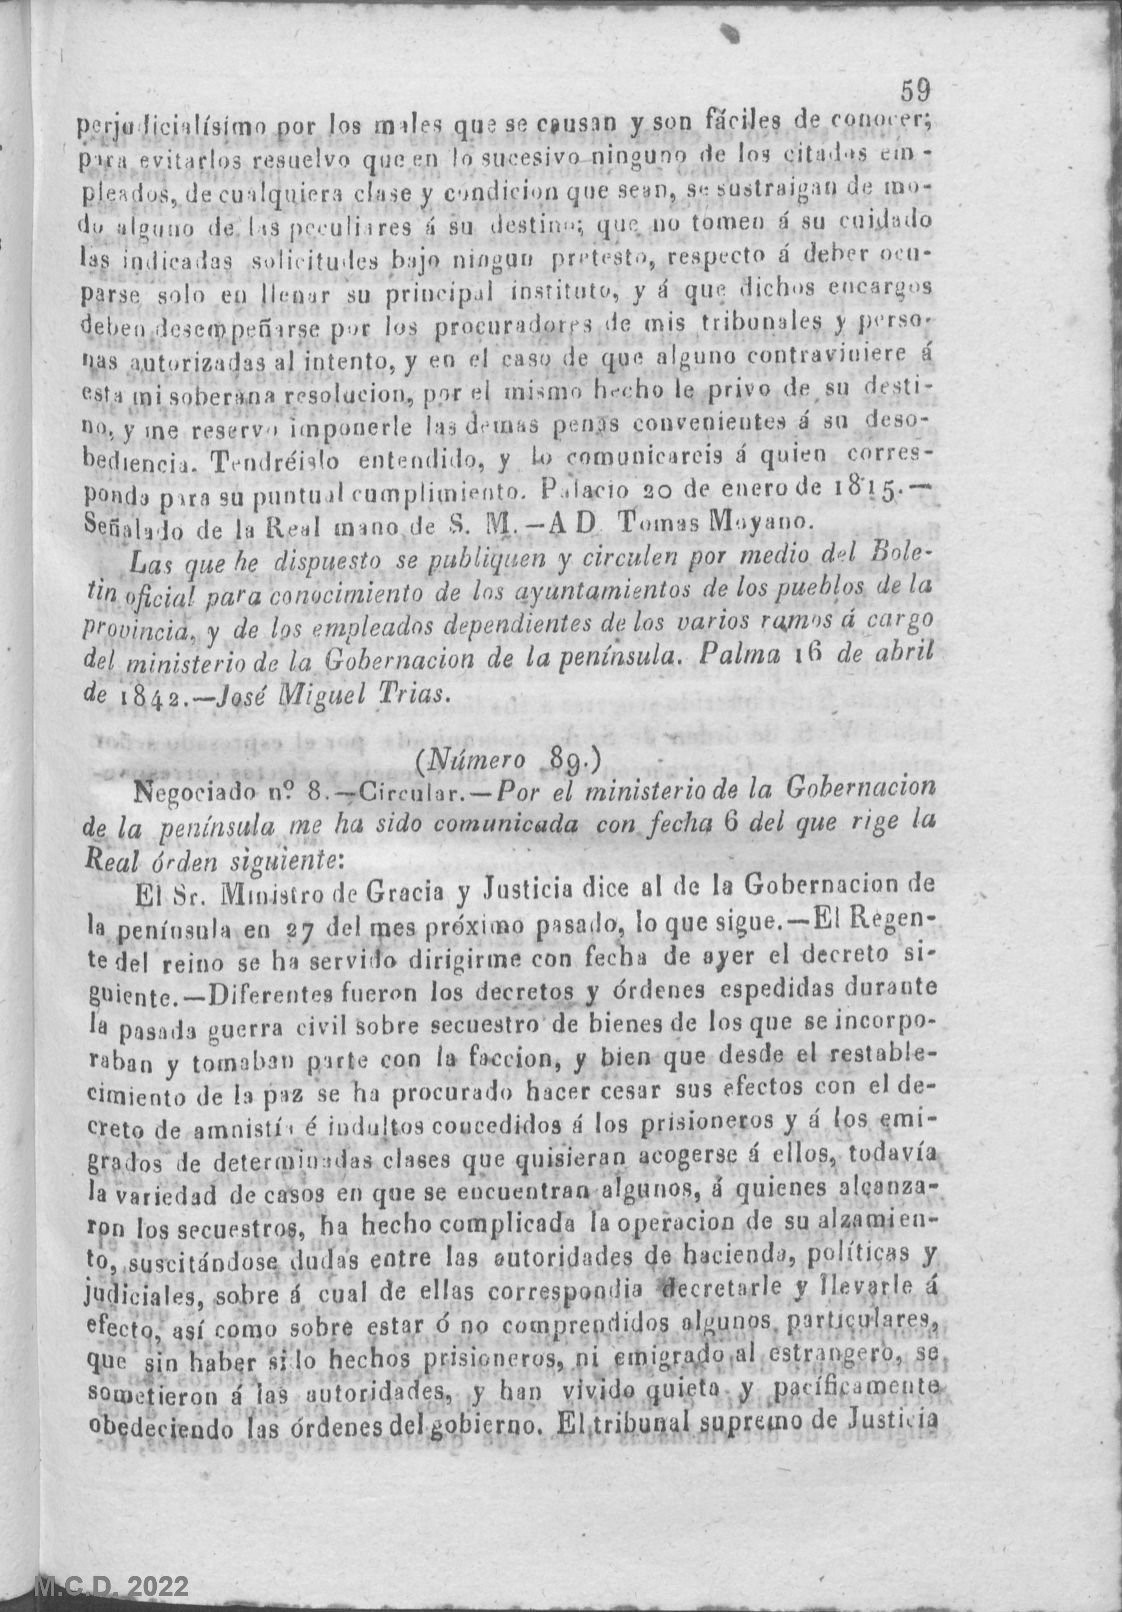 59
perjudicialísimo por los males que se causan y son fáciles de conocer;
para evitarlos resuelvo que en lo sucesivo ninguno de los citados em-
pleados, de cualquiera clase y condicion que sean, se sustraigan de mo-
do alguno de las peculiares á su destino; que no tomen á su cuidado
las indicadas solicitudes bajo ningun pretesto, respecto á deber ocu-
parse solo en llenar su principal instituto, y á que dichos encargos
deben desempeñarse por los procuradores de mis tribunales y perso-
nas autorizadas al intento, y en el caso de que alguno contraviniere á
esta mi soberana resolucion, por el mismo hecho le privo de su desti-
no, y me reservo imponerle las demas penas convenientes á su deso-
bediencia. Tendréislo entendido, y lo comunicareis á quien corres-
ponda para su puntual cumplimiento. Palacio 20 de enero de 1815.—
Señalado de la Real mano de S. M.—A D. Tomas Moyano.
Las que he dispuesto se publiquen y circulen por medio del Bole-
tin oficial para conocimiento de los ayuntamientos de los pueblos de la
provincia, y de los empleados dependientes de los varios ramos á cargo
del ministerio de la Gobernacion de la península. Palma 16 de abril
de 1842.—José Miguel Trias.
(Número 89.)
Negociado nº 8.—Circular.—Por el ministerio de la Gobernacion
de la península me ha sido comunicada con fecha 6 del que rige la
Real órden siguiente:
El Sr. Ministro de Gracia y Justicia dice al de la Gobernacion de
la península en 27 del mes próximo pasado, lo que sigue.—El Regen-
te del reino se ha servido dirigirme con fecha de ayer el decreto si-
guiente.—Diferentes fueron los decretos y órdenes espedidas durante
la pasada guerra civil sobre secuestro de bienes de los que se incorpo-
raban y tomaban parte con la faccion, y bien que desde el restable-
cimiento de la paz se ha procurado hacer cesar sus efectos con el de-
creto de amnistía é indultos concedidos á los prisioneros y á los emi-
grados de determinadas clases que quisieran acogerse á ellos, todavía
la variedad de casos en que se encuentran algunos, á quienes alcanza-
ron los secuestros, ha hecho complicada la operacion de su alzamien-
to, suscitándose dudas entre las autoridades de hacienda, políticas y
judiciales, sobre á cual de ellas correspondia decretarle y llevarle á
efecto, así como sobre estar ó no comprendidos algunos particulares,
que sin haber sido hechos prisioneros, ni emigrado al estrangero, se
sometieron á las autoridades, y han vivido quieta y pacíficamente
obedeciendo las órdenes del gobierno. El tribunal supremo de Justicia
M.C.D. 2022